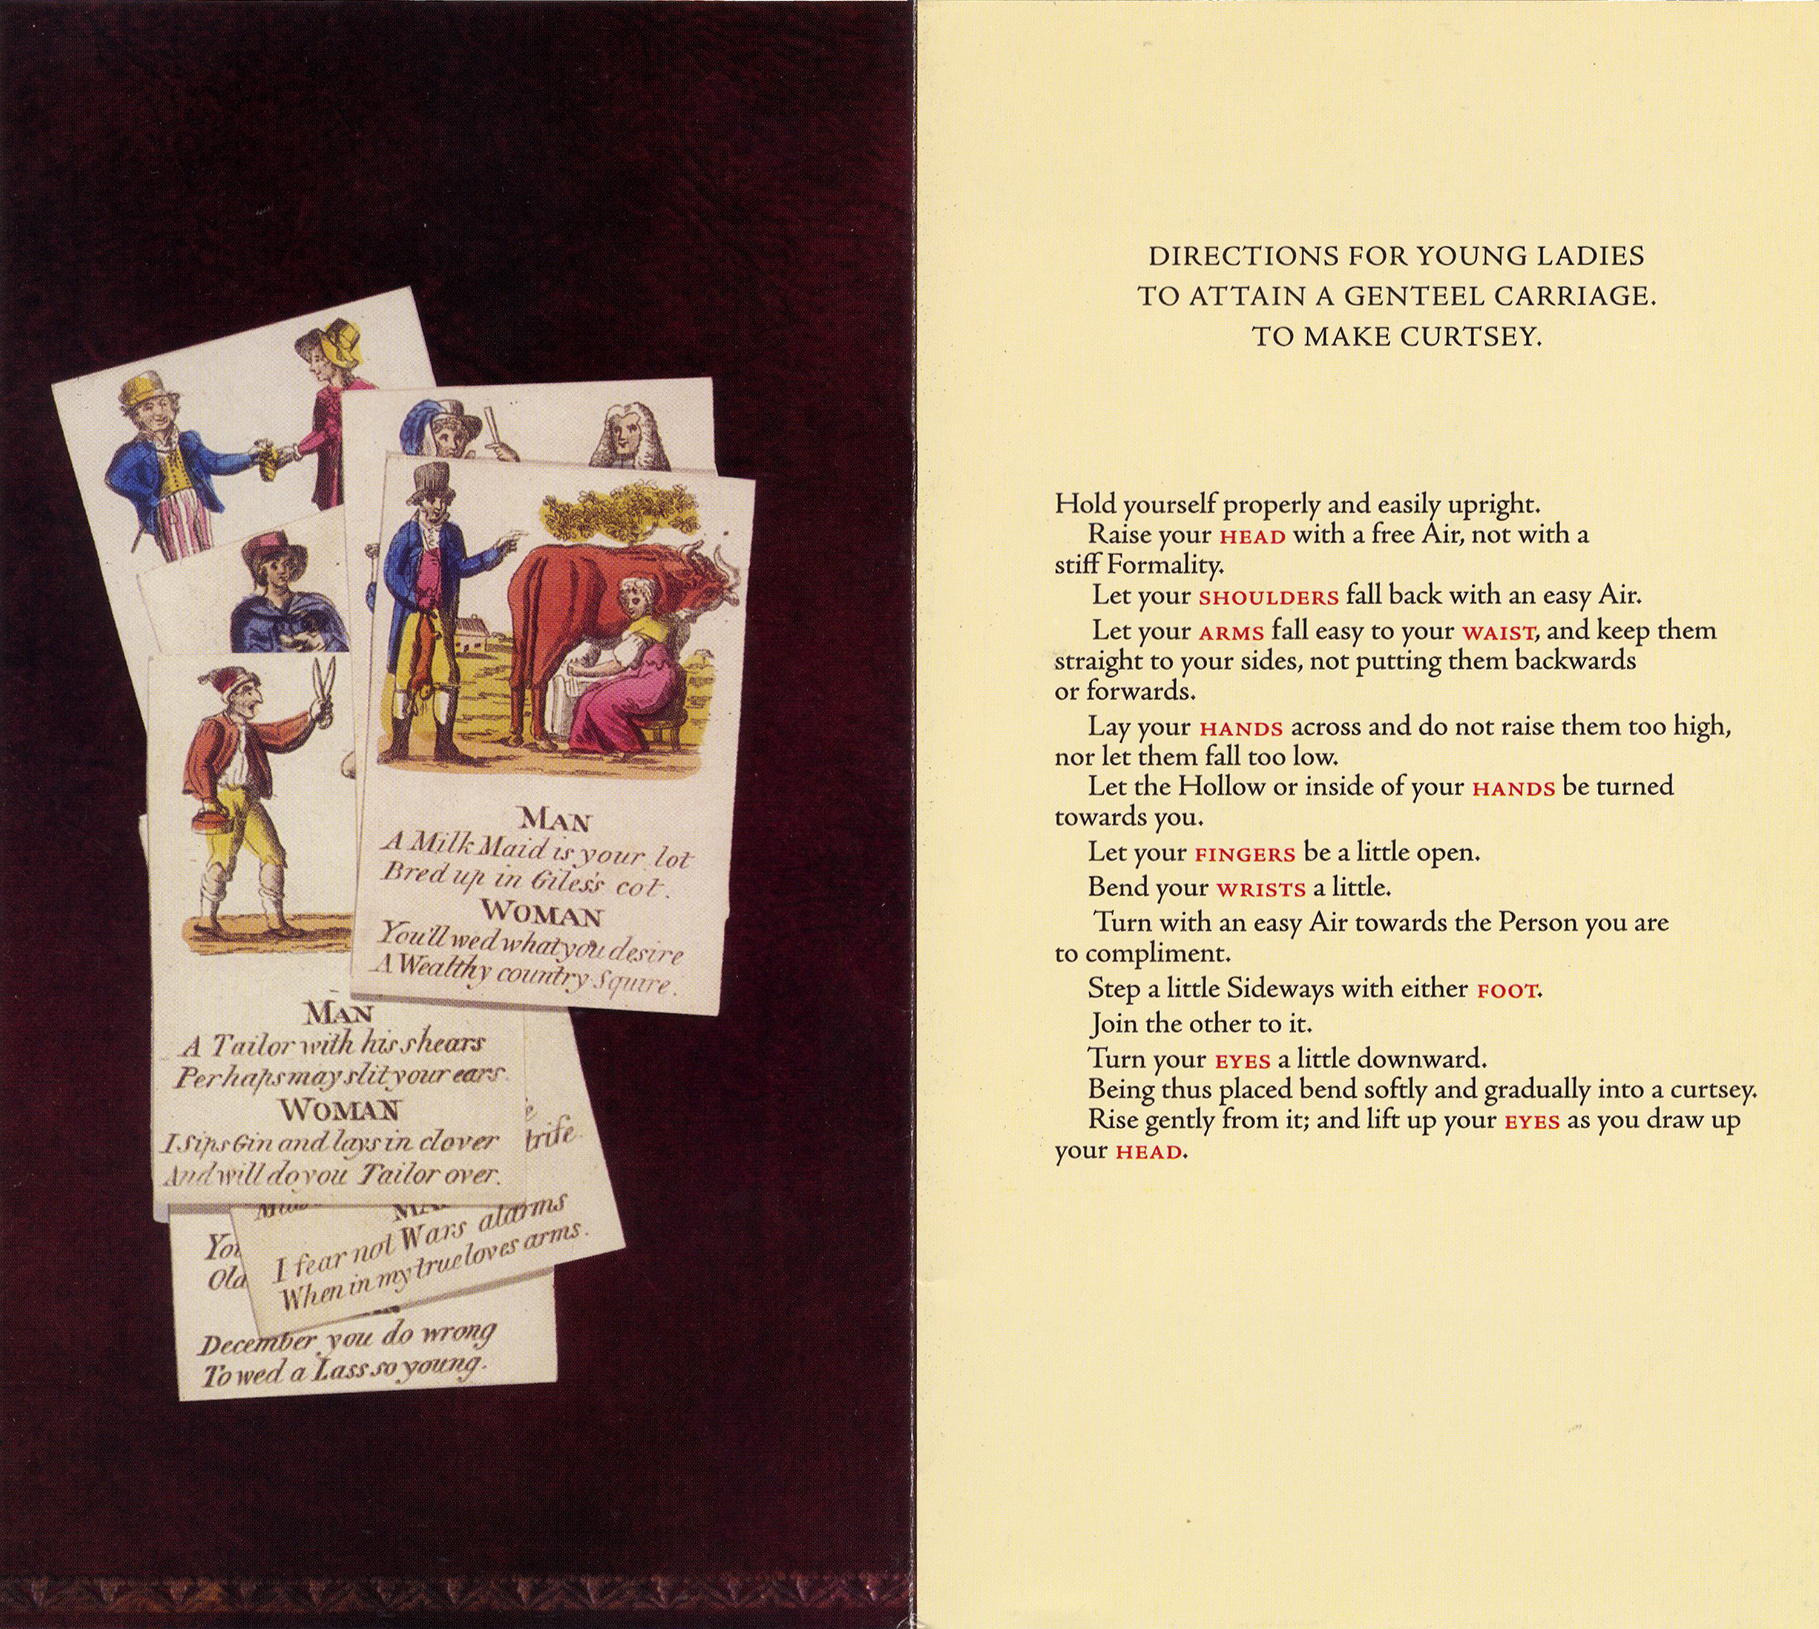 MAN
A Milk Maid is your lot
Bred up in Giles's cot.
WOMAN
You'll wed what you desire
A Wealthy country Squire.
MAN
A Tailor with his shears
Perhaps may slit your ears.
WOMAN
I Sips Gin and lays in clover
And will do you Tailor over.
trife.
I fear not Wars alarms
When in my true loves arms.
You
Old
December you do wrong
To wed a Lass so young.
DIRECTIONS FOR YOUNG LADIES
TO ATTAIN A GENTEEL CARRIAGE.
TO MAKE CURTSEY.
Hold yourself properly and easily upright.
Raise your HEAD with a free Air, not with a
stiff Formality.
Let your SHOULDERS fall back with an easy Air.
Let your ARMS fall easy to your WAIST, and keep them
straight to your sides, not putting them backwards
or forwards.
Lay your HANDS across and do not raise them too high,
nor let them fall too low.
Let the Hollow or inside of your HANDS be turned
towards you.
Let your FINGERS be a little open.
Bend your WRISTS a little.
Turn with an easy Air towards the Person you are
to compliment.
Step a little Sideways with either FOOT.
Join the other to it.
Turn your EYES a little downward.
Being thus placed bend softly and gradually into a curtsey.
Rise gently from it; and lift up your EYES as you draw up
your HEAD.